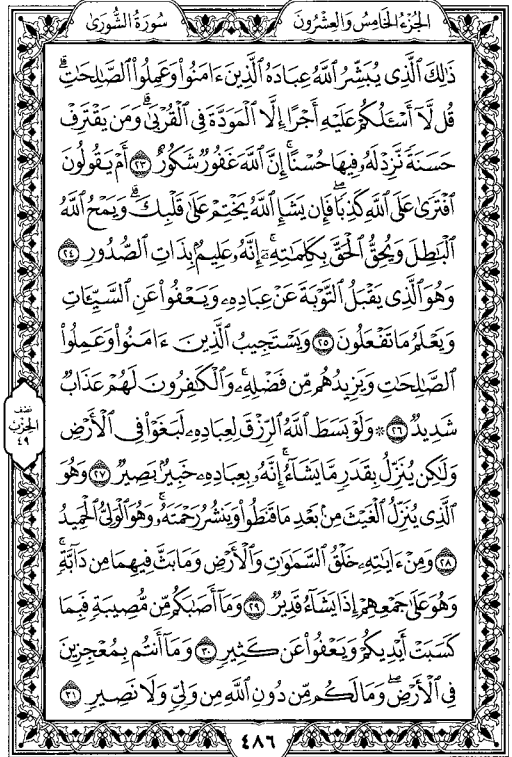 سُورَةُ الشُّورَىٰ
الجُزْءُ الخَامِسُ وَالعِشْرُونَ
ذَٰلِكَ ٱلَّذِى يُبَشِّرُ ٱللَّهُ عِبَادَهُ ٱلَّذِينَ ءَامَنُوا۟ وَعَمِلُوا۟ ٱلصَّٰلِحَٰتِ ۗ
قُل لَّآ أَسْـَٔلُكُمْ عَلَيْهِ أَجْرًا إِلَّا ٱلْمَوَدَّةَ فِى ٱلْقُرْبَىٰ ۗ وَمَن يَقْتَرِفْ
حَسَنَةً نَّزِدْ لَهُۥ فِيهَا حُسْنًا ۚ إِنَّ ٱللَّهَ غَفُورٌ شَكُورٌ ٢٣ أَمْ يَقُولُونَ
ٱفْتَرَىٰ عَلَى ٱللَّهِ كَذِبًا ۖ فَإِن يَشَإِ ٱللَّهُ يَخْتِمْ عَلَىٰ قَلْبِكَ ۗ وَيَمْحُ ٱللَّهُ
ٱلْبَٰطِلَ وَيُحِقُّ ٱلْحَقَّ بِكَلِمَٰتِهِۦٓ ۚ إِنَّهُۥ عَلِيمٌۢ بِذَاتِ ٱلصُّدُورِ ٢٤
وَهُوَ ٱلَّذِى يَقْبَلُ ٱلتَّوْبَةَ عَنْ عِبَادِهِۦ وَيَعْفُوا۟ عَنِ ٱلسَّيِّـَٔاتِ
وَيَعْلَمُ مَا تَفْعَلُونَ ٢٥ وَيَسْتَجِيبُ ٱلَّذِينَ ءَامَنُوا۟ وَعَمِلُوا۟
ٱلصَّٰلِحَٰتِ وَيَزِيدُهُم مِّن فَضْلِهِۦ ۚ وَٱلْكَٰفِرُونَ لَهُمْ عَذَابٌ
شَدِيدٌ ٢٦ ۞ وَلَوْ بَسَطَ ٱللَّهُ ٱلرِّزْقَ لِعِبَادِهِۦ لَبَغَوْا۟ فِى ٱلْأَرْضِ
وَلَٰكِن يُنَزِّلُ بِقَدَرٍ مَّا يَشَآءُ ۚ إِنَّهُۥ بِعِبَادِهِۦ خَبِيرٌۢ بَصِيرٌ ٢٧ وَهُوَ
ٱلَّذِى يُنَزِّلُ ٱلْغَيْثَ مِنۢ بَعْدِ مَا قَنَطُوا۟ وَيَنشُرُ رَحْمَتَهُۥ ۚ وَهُوَ ٱلْوَلِىُّ ٱلْحَمِيدُ
٢٨ وَمِنْ ءَايَٰتِهِۦ خَلْقُ ٱلسَّمَٰوَٰتِ وَٱلْأَرْضِ وَمَا بَثَّ فِيهِمَا مِن دَآبَّةٍ ۚ
وَهُوَ عَلَىٰ جَمْعِهِمْ إِذَا يَشَآءُ قَدِيرٌ ٢٩ وَمَآ أَصَٰبَكُم مِّن مُّصِيبَةٍ فَبِمَا
كَسَبَتْ أَيْدِيكُمْ وَيَعْفُوا۟ عَن كَثِيرٍ ٣٠ وَمَآ أَنتُم بِمُعْجِزِينَ
فِى ٱلْأَرْضِ ۖ وَمَا لَكُم مِّن دُونِ ٱللَّهِ مِن وَلِىٍّ وَلَا نَصِيرٍ ٣١
نصف
الحزب
٤٩
٤٨٦